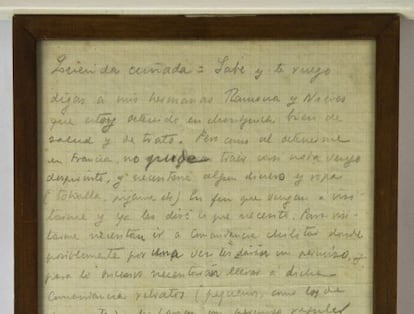 Querida cuñada = Sabe y te ruego
digas a mis hermanas Ramona y Nieves
que estoy detenido en bien de
salud y de trato. Pero como al detenerme
en Francia, no pude traer con nada vengo
desprovisto, y necesitaré algun dinero y ropa
(toalla, pijama etc) En fin que vengan a visi-
tarme y ya les diré lo que necesite. Para vi-
tarme necesitan ir a Comandancia militar donde
posiblemente por una vez les darán un permiso, y
para lo sucesivo necesitarán llevar a dicha
Comandancia retratos (pequeños como los de